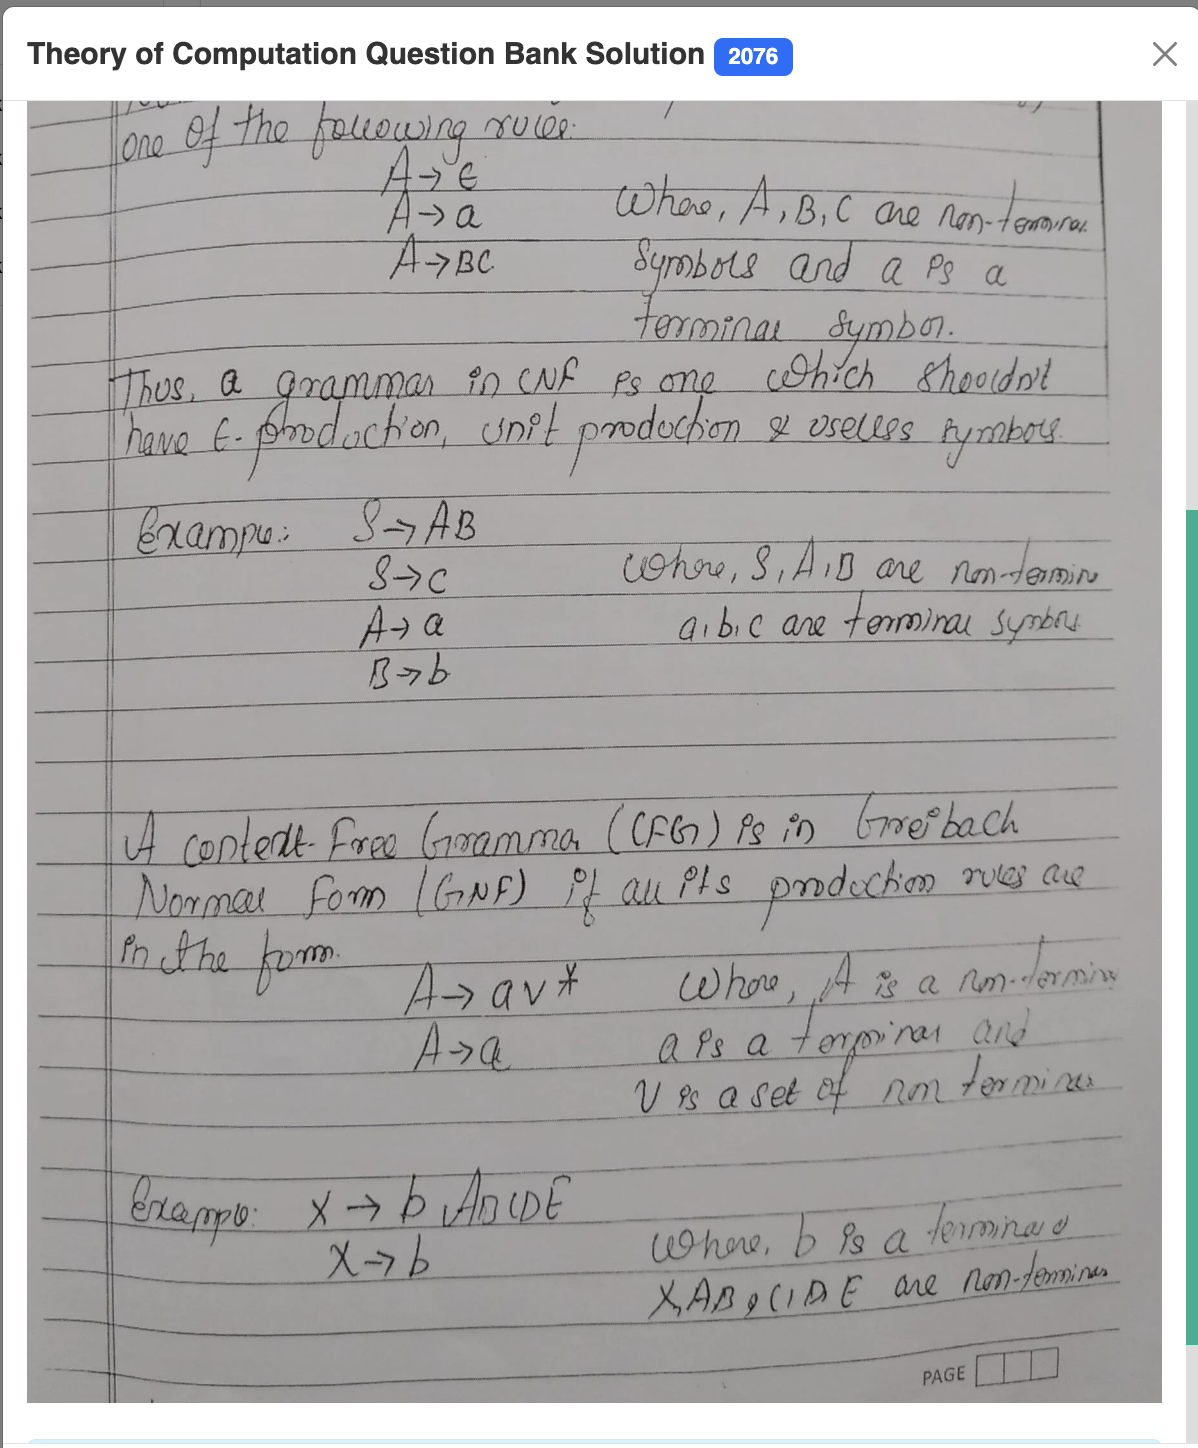 Theory of Computation Question Bank Solution 2076
one of the following rules:
A → ε
A → a
A → BC
Where, A, B, C are non-terminal
Symbols and a is a
terminal symbol.
Thus, a grammar in CNF is one which shouldn't
have ε-production, unit production & useless symbols.
Example: S → AB
S → c
A → a
B → b
Where, S, A, B are non-termin
a, b, c are terminal symbols
A context-Free Grammar (CFG) is in Greibach
Normal Form (GNF) if all its production rules are
in the form.
A → av*
A → a
Where, A is a non-termin
a is a terminal and
V is a set of non terminals
Example: X → b ABCDE
X → b
Where, b is a terminal &
X, A B & C, D E are non-terminals
PAGE